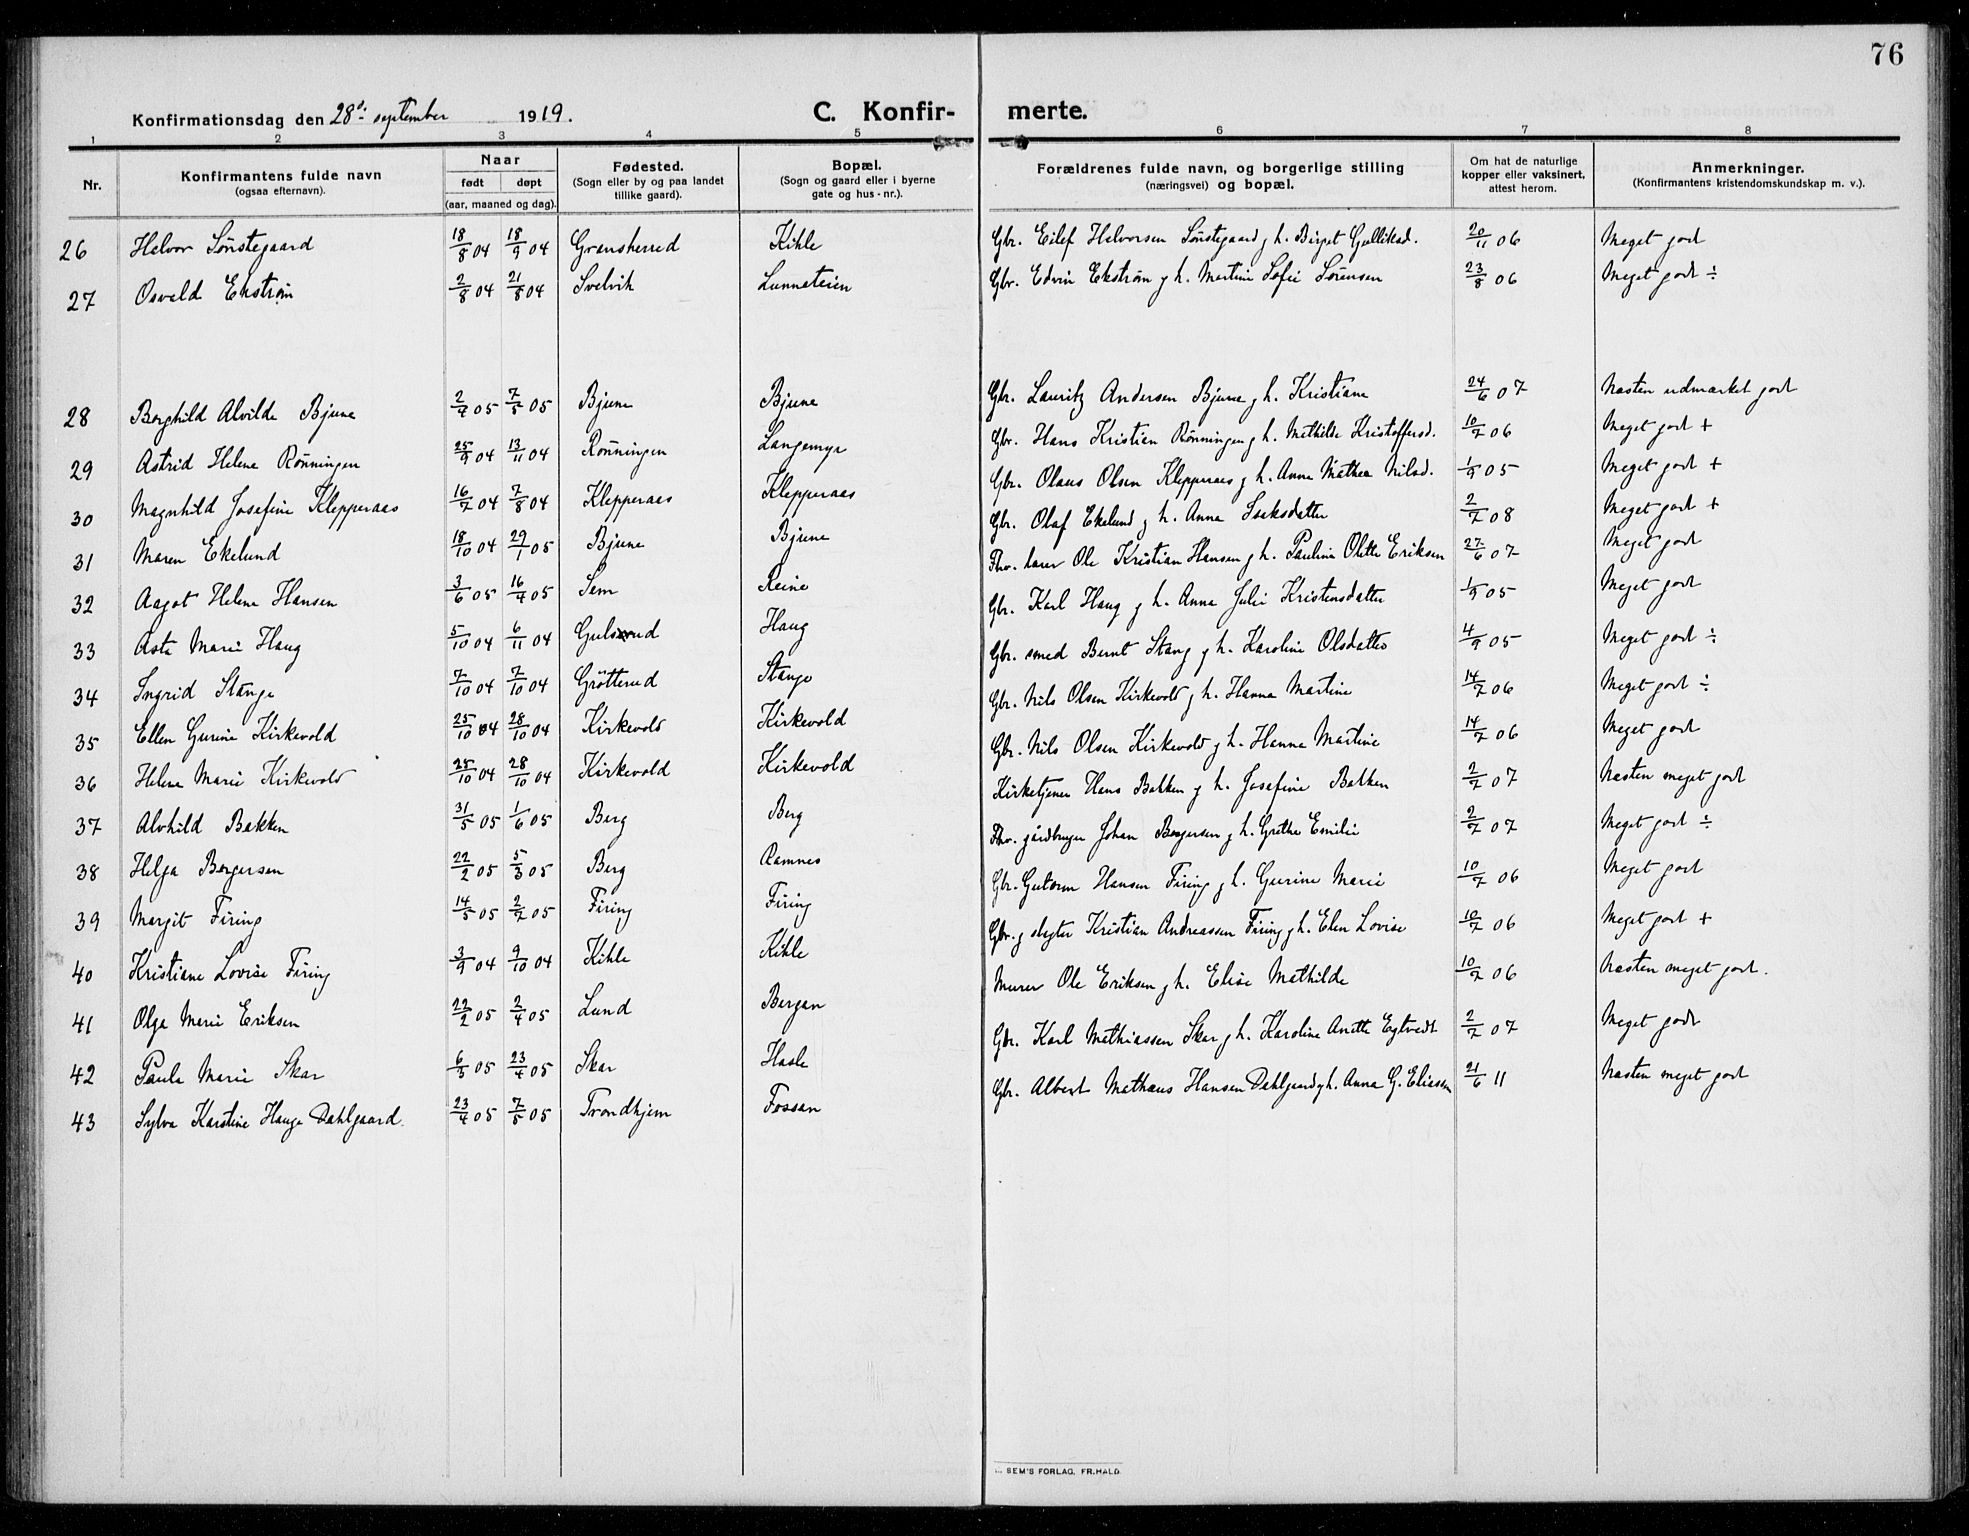 76
Konfirmationsdag den 28de september 1919.
C. Konfirmerte.
1 2 3 4 5 6 7 8
Nr. | Konfirmantens fulde navn (ogsaa efternavn). | Naar født døpt (aar, maaned og dag). | Fødested. (Sogn eller by og paa landet tillike gaard). | Bopæl. (Sogn og gaard eller i byerne gate og hus-nr.). | Forældrenes fulde navn, og borgerlige stilling (næringsvei) og bopæl. | Om hat de naturlige kopper eller vaksinert, attest herom. | Anmerkninger. (Konfirmantens kristendomskundskap m. v.).
26 Helvor Sönstegaard 18/8 04 18/9 04 Gransherred Kihle Gbr. Eilef Helvorsen Sönstegaard g h. Birget Gulliksd. 20/11 06 Meget godt
27 Osvald Ekström 2/8 04 21/8 04 Svelvik Lunneteien Gbr. Edvin Ekström g h. Martine Sofie Sörensen 23/8 06 Meget godt ÷
28 Borghild Alvilde Bjune 2/4 05 7/5 05 Bjune Bjune Gbr. Lauritz Andersen Bjune g h. Kristiane 24/6 07 Næsten udmærket godt
29 Astrid Helene Rönningen 25/9 04 13/11 04 Rönningen Langemyr Gbr. Hans Kristian Rönningen g h. Mathilde Kristoffersd. 10/7 06 Meget godt +
30 Magnhild Josefine Klepperaas 16/7 04 7/8 04 Klepperaas Klepperaas Gbr. Olaus Olsen Klepperaas g h. Anne Mathea Nilsd. 1/9 05 Meget godt +
31 Maren Ekelund 18/10 04 29/1 05 Bjune Bjune Gbr. Olaf Ekelund g h. Anna Isaksdatter 2/7 08 Meget godt +
32 Aagot Helene Hansen 3/6 05 16/4 05 Sem Reine Fhv. lærer Ole Kristian Hansen g h. Pauline Olette Eriksen 27/6 07 Meget godt
33 Asta Marie Haug 5/10 04 6/11 04 Gulsrud Haug Gbr. Karl Haug g h. Anna Julie Kristensdatter 1/9 05 Meget godt
34 Ingrid Stange 7/10 04 7/10 04 Grötterud Stange Gbr. smed Bernt Stang g h. Karoline Olsdatter 4/9 05 Meget godt ÷
35 Ellen Gurine Kirkevold 25/10 04 28/10 04 Kirkevold Kirkevold Gbr. Nils Olsen Kirkevold g h. Hanna Martine 14/7 06 Meget godt ÷
36 Helene Marie Kirkevold 25/10 04 28/10 04 Kirkevold Kirkevold Gbr. Nils Olsen Kirkevold g h. Hanna Martine 14/7 06 Meget godt
37 Alvhild Bakken 31/5 05 1/6 05 Berg Berg Kirketjener Hans Bakken g h. Josefine Bakken 2/7 07 Næsten meget godt
38 Helga Bergersen 22/2 05 5/3 05 Berg Ramnes Fhv. gårdbruger Johan Bergersen g h. Grethe Emilie 2/7 07 Meget godt ÷
39 Margit Firing 14/5 05 2/7 05 Firing Firing Gbr. Gutorm Hansen Firing g h. Gurine Marie 10/7 06 Meget godt
40 Kristiane Lovise Firing 3/9 04 9/10 04 Kihle Kihle Gbr. g slagter Kristian Andreassen Firing g h. Elen Lovise 10/7 06 Meget godt +
41 Olga Marie Eriksen 22/2 05 2/4 05 Lund Bergan Murer Ole Eriksen g h. Elise Mathilde 10/7 06 Næsten meget godt.
42 Paula Marie Skar 6/3 05 23/4 05 Skar Hasle Gbr. Karl Mathiassen Skar g h. Karoline Anette Egtvedt 2/7 07 Meget godt
43 Sylva Karstine Hauge Dahlgaard. 23/4 05 7/5 05 Trondhjem Fossan Gbr. Albert Mathæus Hansen Dahlgaard g h. Anna G. Eliassen 21/6 11 Næsten meget godt
SEM'S FORLAG, FR.HALD